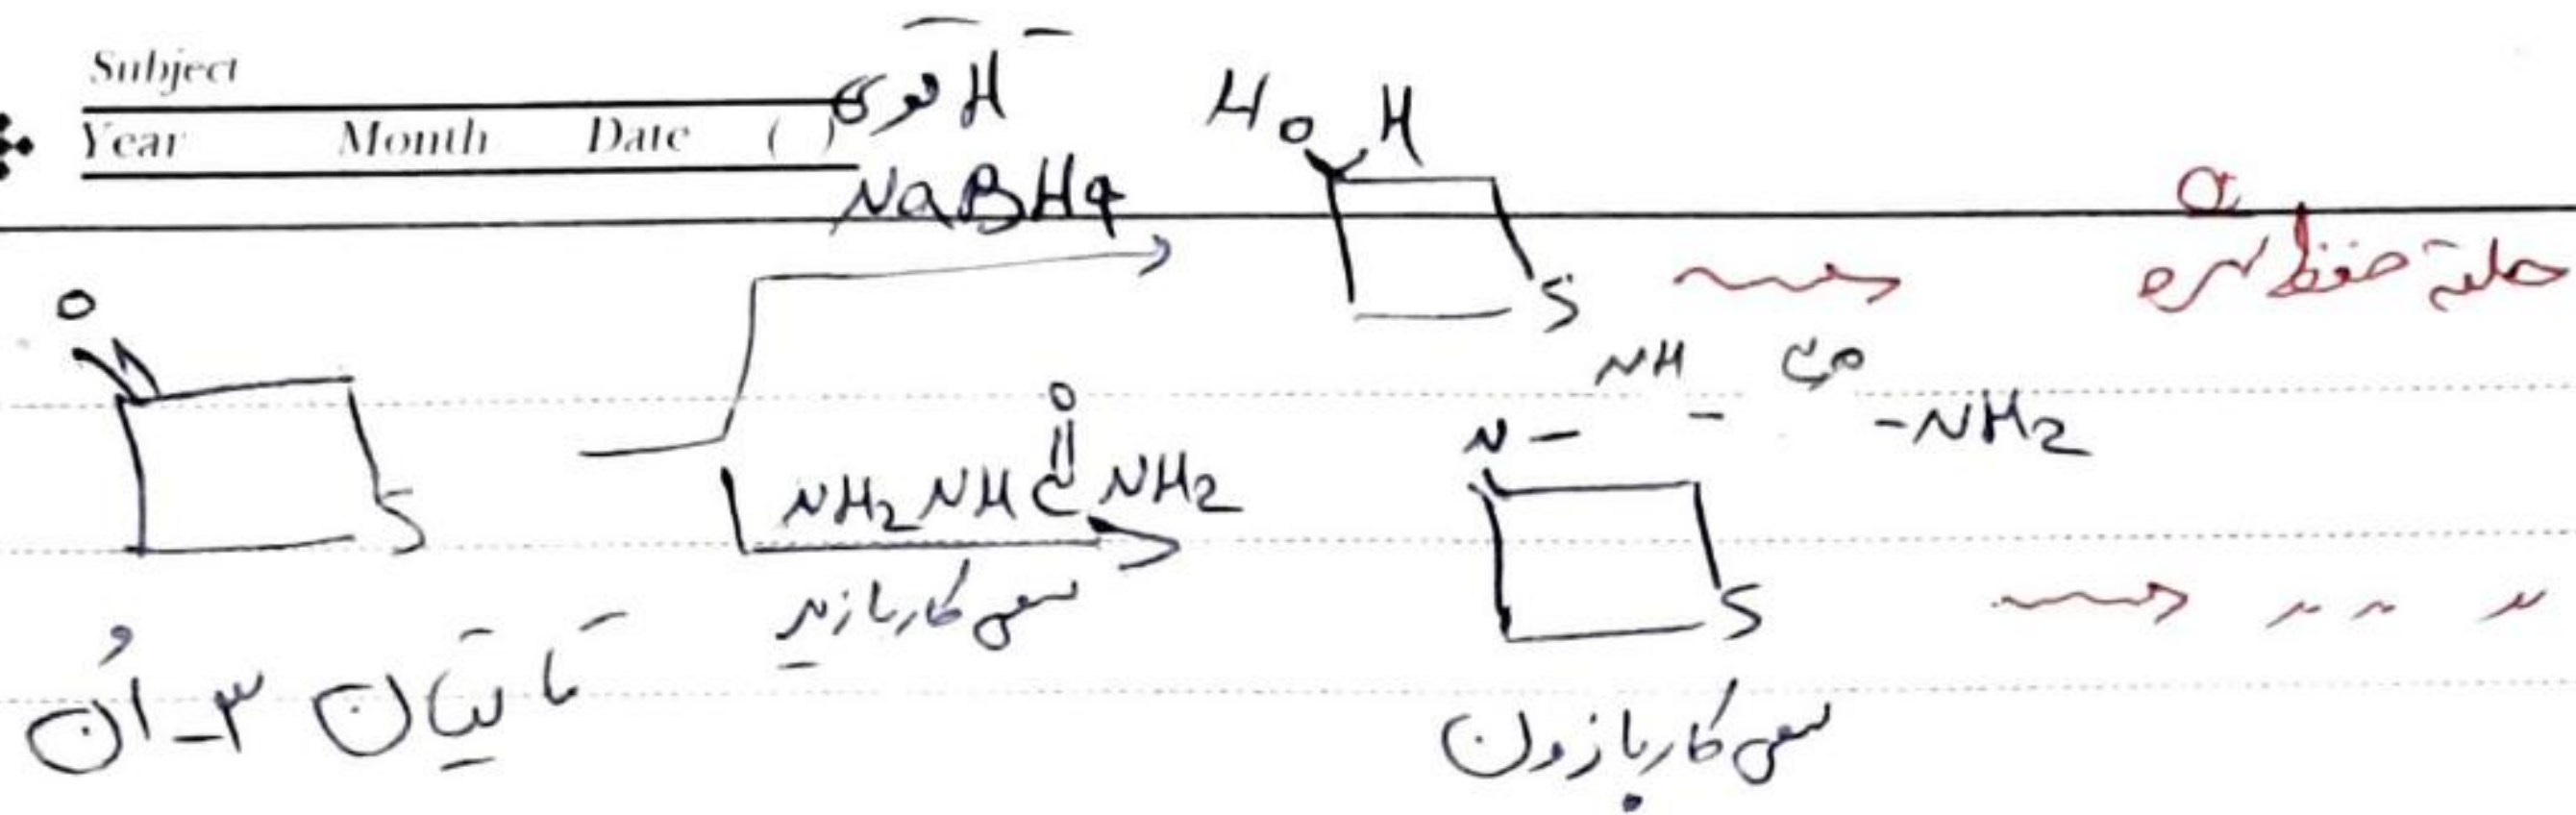 Subject
Year Month Date ( )
H⁻ قوی
NaBH4
HO H
S
حلقه حفظ شده
O
S
NH2NHCNH2
O
سمی کاربازید
N - NH - CO - NH2
S
" " "
تیتان ۳-اُن
سمی کاربازون